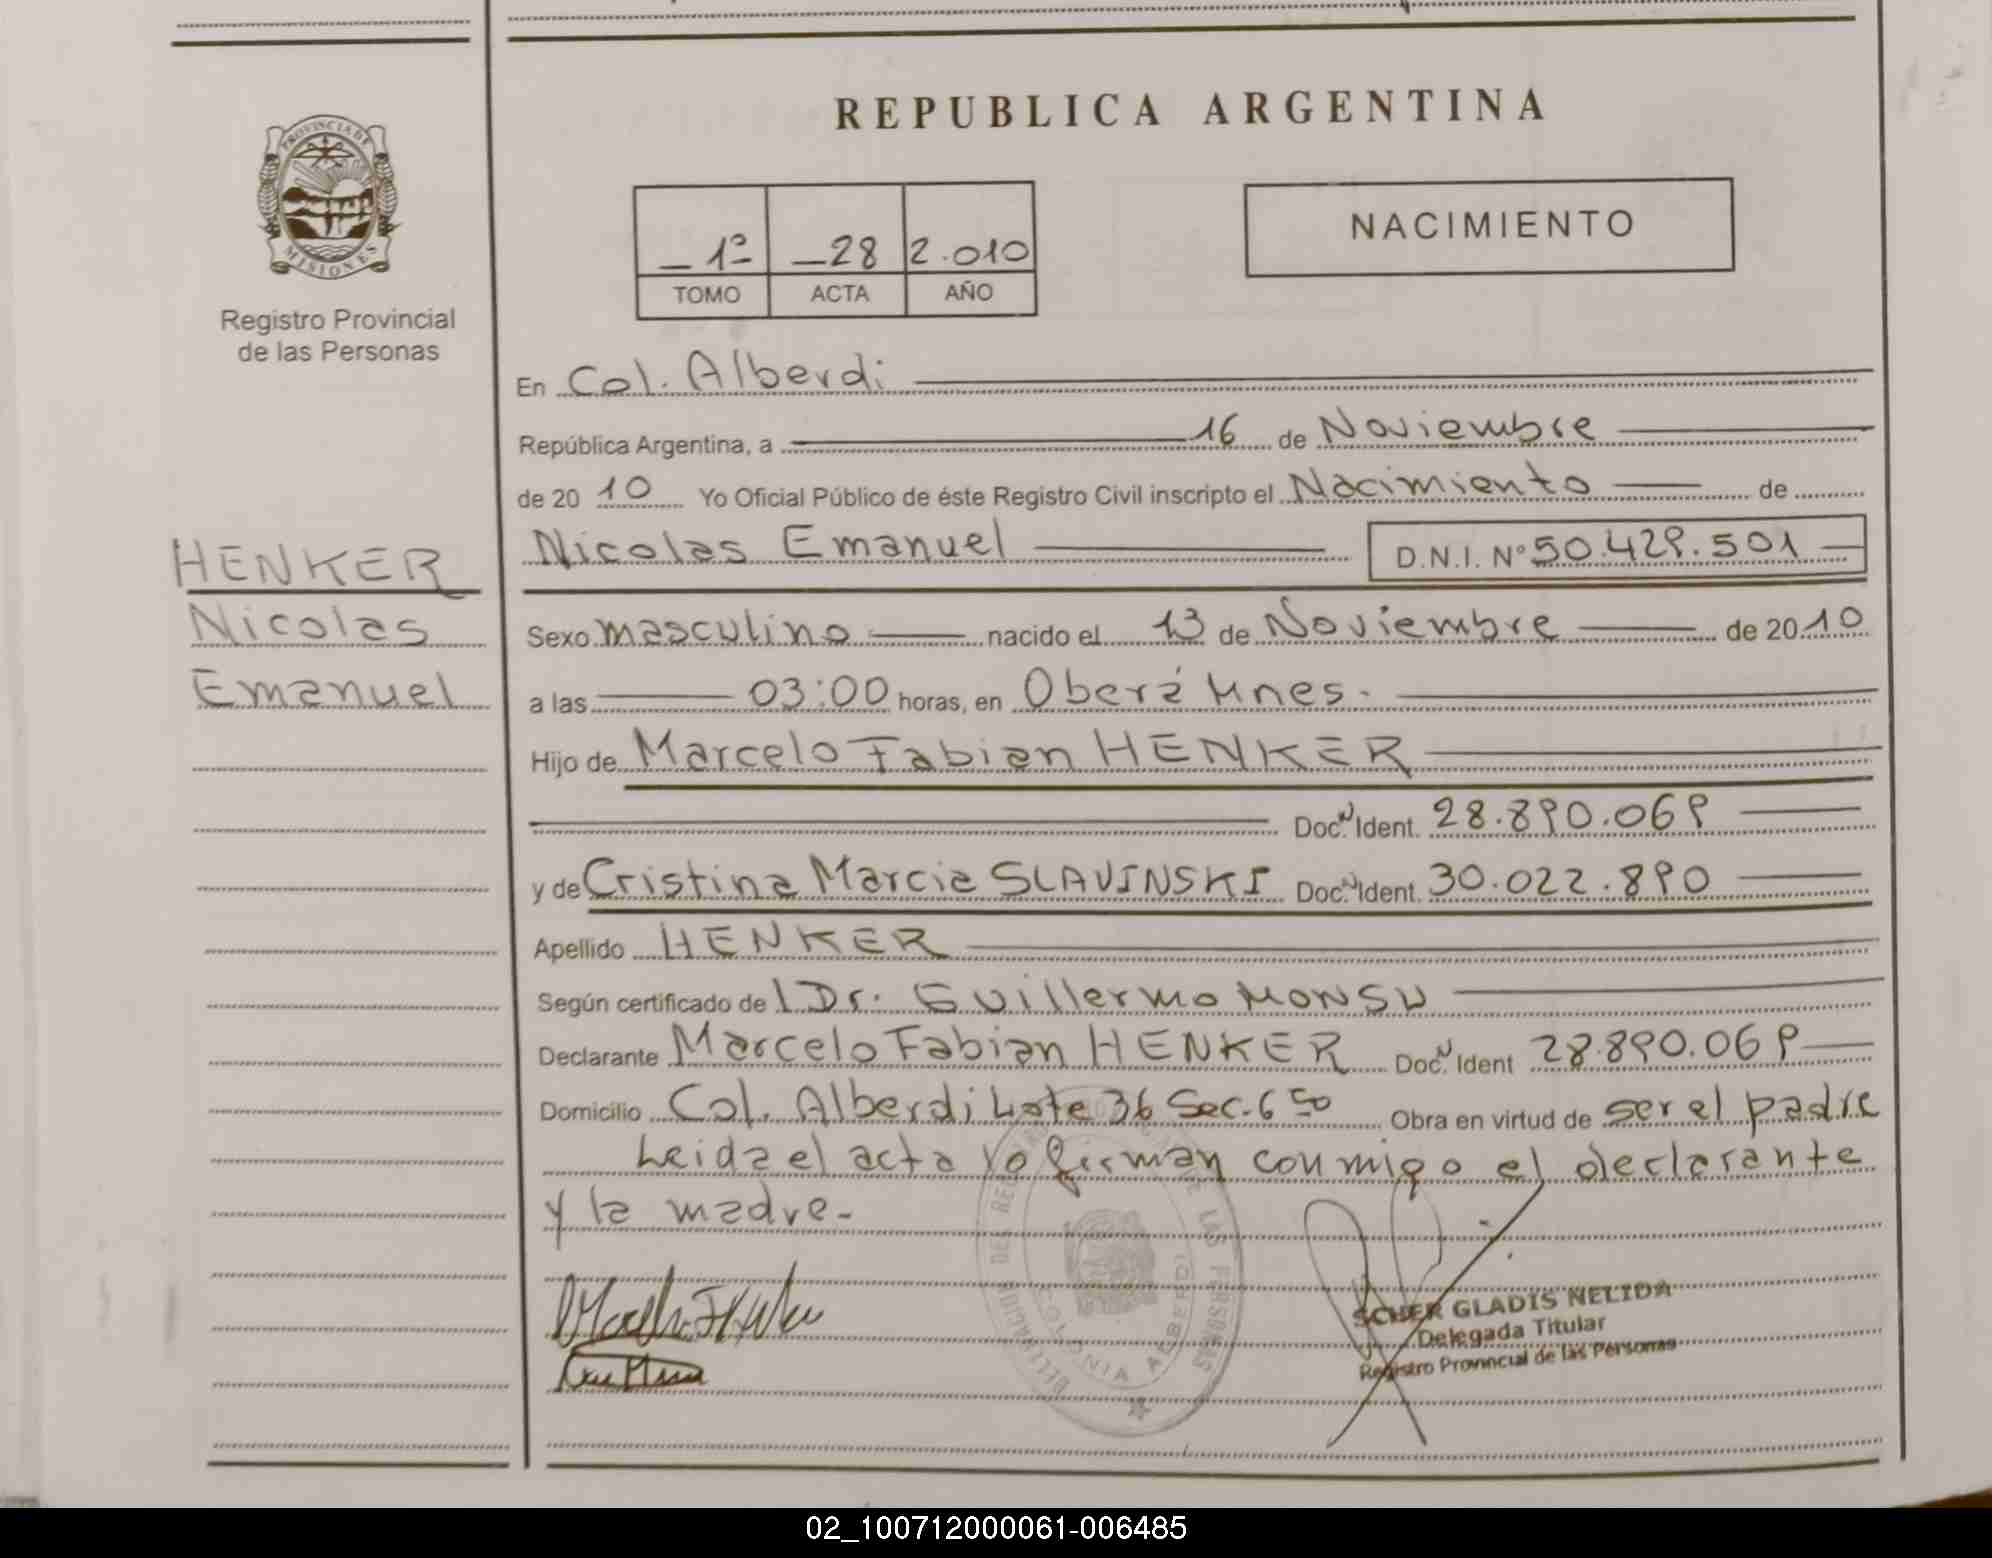 REPUBLICA ARGENTINA
PROVINCIA DE MISIONES
Registro Provincial
de las Personas
1º 28 2.010
TOMO ACTA AÑO
NACIMIENTO
En Col. Alberdi
República Argentina, a 16 de Noviembre
de 2010 Yo Oficial Público de éste Registro Civil inscripto el Nacimiento de
Nicolas Emanuel D.N.I. Nº 50.429.501
HENKER
Nicolas
Emanuel
Sexo masculino nacido el 13 de Noviembre de 2010
a las 03:00 horas, en Oberá Mnes.
Hijo de Marcelo Fabian HENKER
Doc. N Ident. 28.890.069
y de Cristina Marcia SLAVINSKI Doc. N Ident. 30.022.890
Apellido HENKER
Según certificado de l Dr. Guillermo MONSU
Declarante Marcelo Fabian HENKER Doc. N Ident 28.890.069
Domicilio Col. Alberdi Lote 36 Sec. 6 Obra en virtud de ser el padre
Leida el acta la firman conmigo el declarante
y la madre.-
DELEGACION DEL REGISTRO DE LAS PERSONAS
COLONIA ALBERDI
SCHER GLADIS NELIDA
Delegada Titular
Registro Provincial de las Personas
02_100712000061-006485